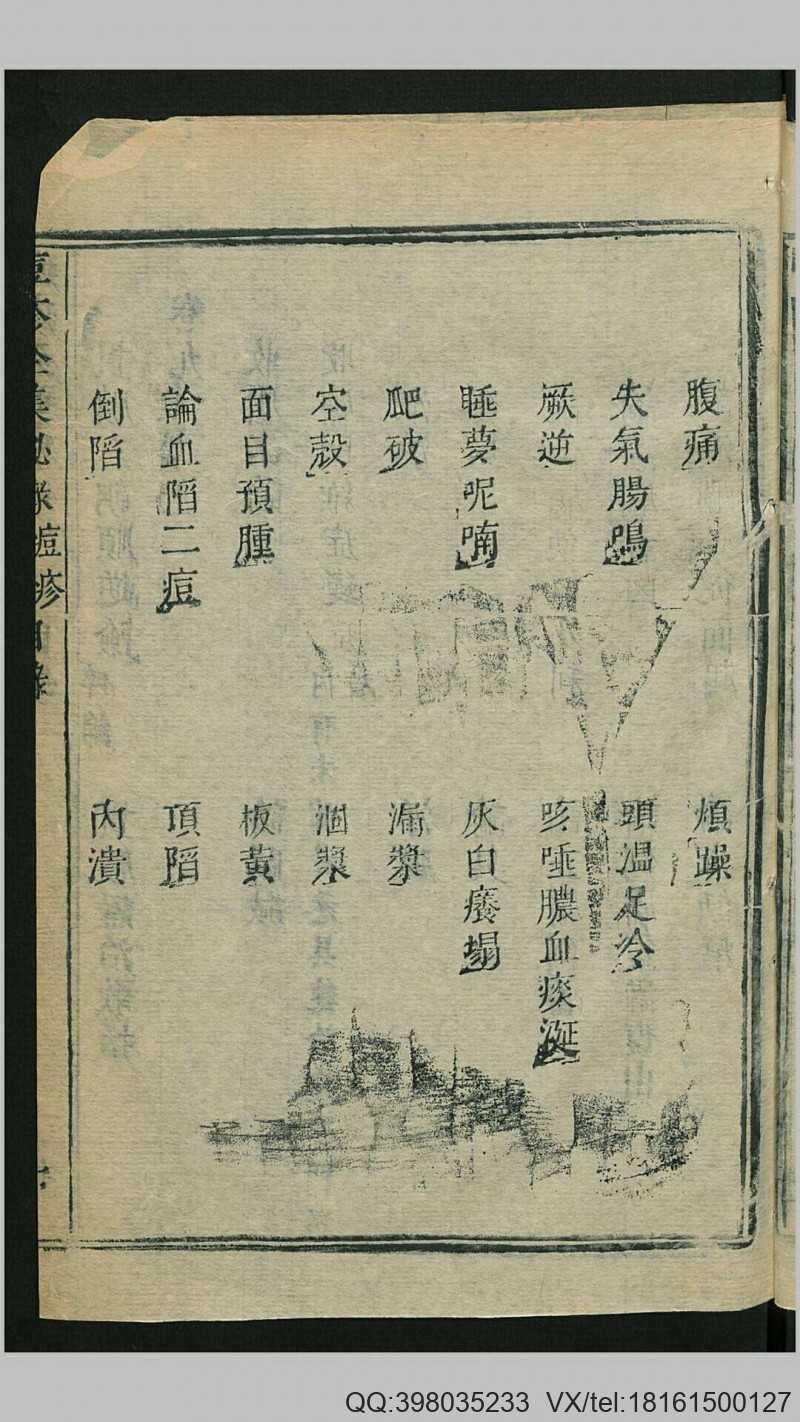 腹痛
煩躁
失氣腸鳴
頭溫足冷
厥逆
咳唾膿血痰涎
睡夢呢喃
灰白癢塌
爬破
漏漿
空殼
涸漿
面目預腫
板黃
論血陷二痘
頂陷
倒陷
內潰
痘疹目錄
QQ:398035233 VX/tel:18161500127